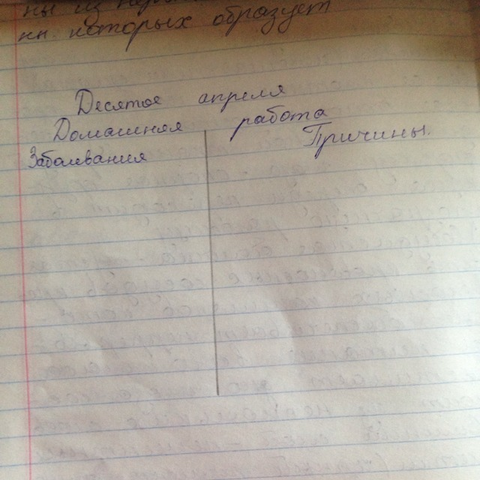 ны из
ны которых образует
Десятое апреля
Домашняя работа
Заболевания Причины.